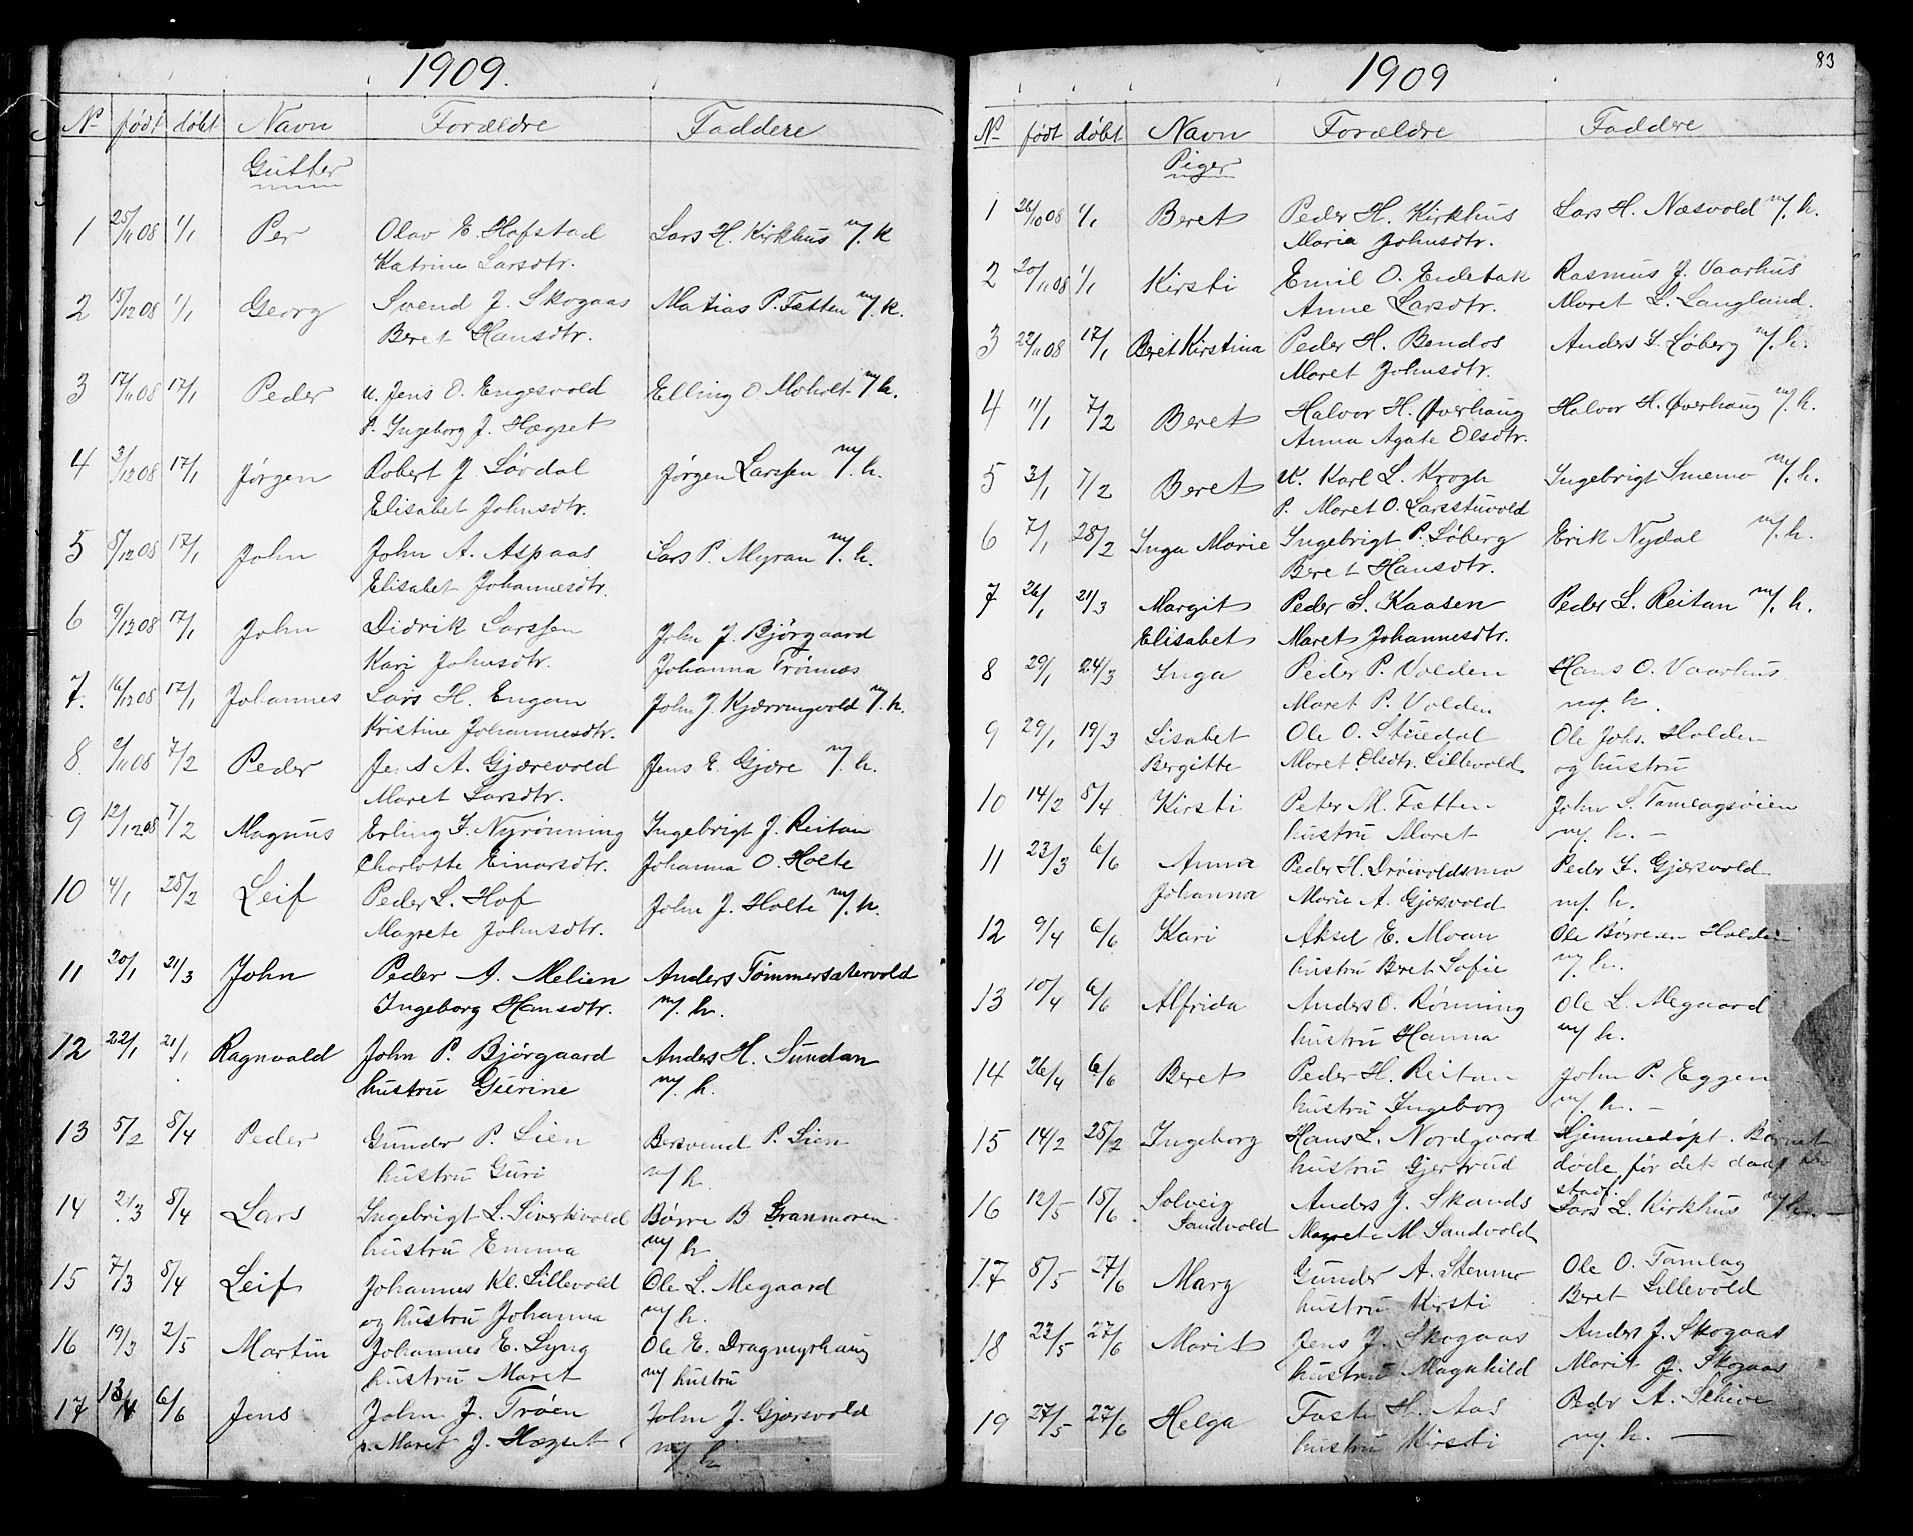 1909.
No født døbt Navn Forældre Faddere
Gutter
1 25/11 08 1/1 Per Olav E. Hofstad Lars H. Kirkhus m/. k
Katrine Larsdtr.
2 15/12 08 1/1 Georg Svend J. Skogaas Matias P. Tætten m/. k.
Beret Hansdtr.
3 17/11 08 17/1 Peder u. Jens O. Engesvold Elling O Moholt m/ h.
P. Ingeborg J. Hægset
4 3/12 08 17/1 Jørgen Robert J Løvdal Jørgen Larssen m/. h.
Elisabet Johnsdtr.
5 8/12 08 17/1 John John A. Aspaas Lars P. Myran m/. h.
Elisabet Johannesdtr.
6 9/12 08 17/1 John Didrik Larssen John J. Bjørgaard
Kari Johnsdtr. Johanna Trønnæs
7. 16/12 08 17/1 Johannes Lars H. Engan John J. Kjærringvold m/. h.
Kristine Johannesdtr.
8 2/11 08 7/2 Peder Jens A. Gjærevold Jens E. Gjære m/. h.
Maret Larsdtr.
9 12/12 08 7/2 Magnus Erling I. Nyrønning Ingebrigt J. Reitan
Charlotte Einarsdtr. Johanna O. Holte
10 4/1 28/2 Leif Peder L. Hof John J. Holte m/. h.
Magrete Johnsdtr.
11 20/1 21/3 John Peder A. Melien Anders Tømmersætervold
Ingeborg Hansdtr. m/. h.
12 22/1 21/1 Ragnvald John P. Bjørgaard Anders H. Sundan
hustru Gurine m/. h.
13 5/2 8/4 Peder Gunder P. Lien Bersvend P. Lien
hustru Guri m/ h
14 21/3 8/4 Lars Ingebrigt L. Siverksvold Børre B Granmoren
hustru Emma m/ h
15 7/3 8/4 Leif Johannes Kl. Lillevold Ole L. Megaard
og hustru Johanna m/ h.
16 19/3 2/5 Martin Johannes E. Lyng Ole E. Dragmyrhaug
hustru Maret m/ hustru
17 13/4 6/6 Jens John J. Trøen John J. Gjærsvold
p. Maret J. Hægset m/ h
83
1909
No født døbt Navn Forældre Faddere
Piger
1 26/10 08 1/1 Beret Peder H. Kirkhus Lars H. Næsvold m/. h.
Maria Johnsdtr.
2 20/11 08 1/1 Kirsti Emil O. Eidetak Rasmus J. Vaarhus
Anne Larsdtr. Maret L. Langland.
3 22/11 08 17/1 Beret Kirstina Peder H. Bendos Anders I. Løberg m/. h.
Maret Johnsdtr.
4 11/1 7/2 Beret Halvor H. Øverhaug Halvor H. Øverhaug m/. h.
Anna Agate Olsdtr.
5 3/1 7/2 Beret u. Karl L. Krogh Ingebrigt Smemo m/. h.
P. Maret O. Larsstuvold
6 7/1 28/2 Inga Marie Ingebrigt P. Løberg Erik Nydal m/. h.
Beret Hansdtr.
7 26/1 21/3 Margit Peder S. Kaasen Peder L. Reitan m/. h.
Elisabet Maret Johannesdtr.
8 29/1 24/3 Inga Peder P. Volden Hans O. Vaarhus
Maret P. Volden m/. h.
9 29/1 19/3 Lisabet Ole O. Stuedal Ole Johs. Holden
Bergitte Maret Olsdtr. Lillevold og hustru
10 14/2 8/4 Kirsti Peter M. Tætten John S. Tamlagsøien
hustru Maret m/. h. –
11 23/3 6/6 Anna Peder H. Drøivoldsmo Peder I. Gjærsvold
Johanna Marie A. Gjærsvold m/. h.
12 9/4 6/6 Kari Aksel E. Moan Ole Børresen Holden
hustru Beret Sofie m/. h.
13 10/4 6/6 Alfrida Anders O. Rønning Ole L. Megaard
hustru Hanna m/ h.
14 26/4 6/6 Beret Peder H. Reitan John P. Eggen
hustru Ingeborg m/. h. –
15 14/2 28/2 Ingeborg Hans L. Nordgaard Hjemmedøpt. Barnet
hustru Gjertrud døde før det daaf blev
stadf.
16 12/5 18/6 Solveig Anders J. Skands Lars L. Kirkhus m/ h. –
Sandvold Magrete M Sandvold
17 8/5 27/6 Mary Gunder A. Stenmo Ole O. Tamlag
hustru Kirsti Beret Lillevold
18 23/5 27/6 Marit Jens J. Skogaas Anders J. Skogaas
hustru Magnhild Marit J. Skogaas
19 27/5 27/6 Helga Faste H. Aas Peder A. Skive
hustru Kirsti m/. h. –